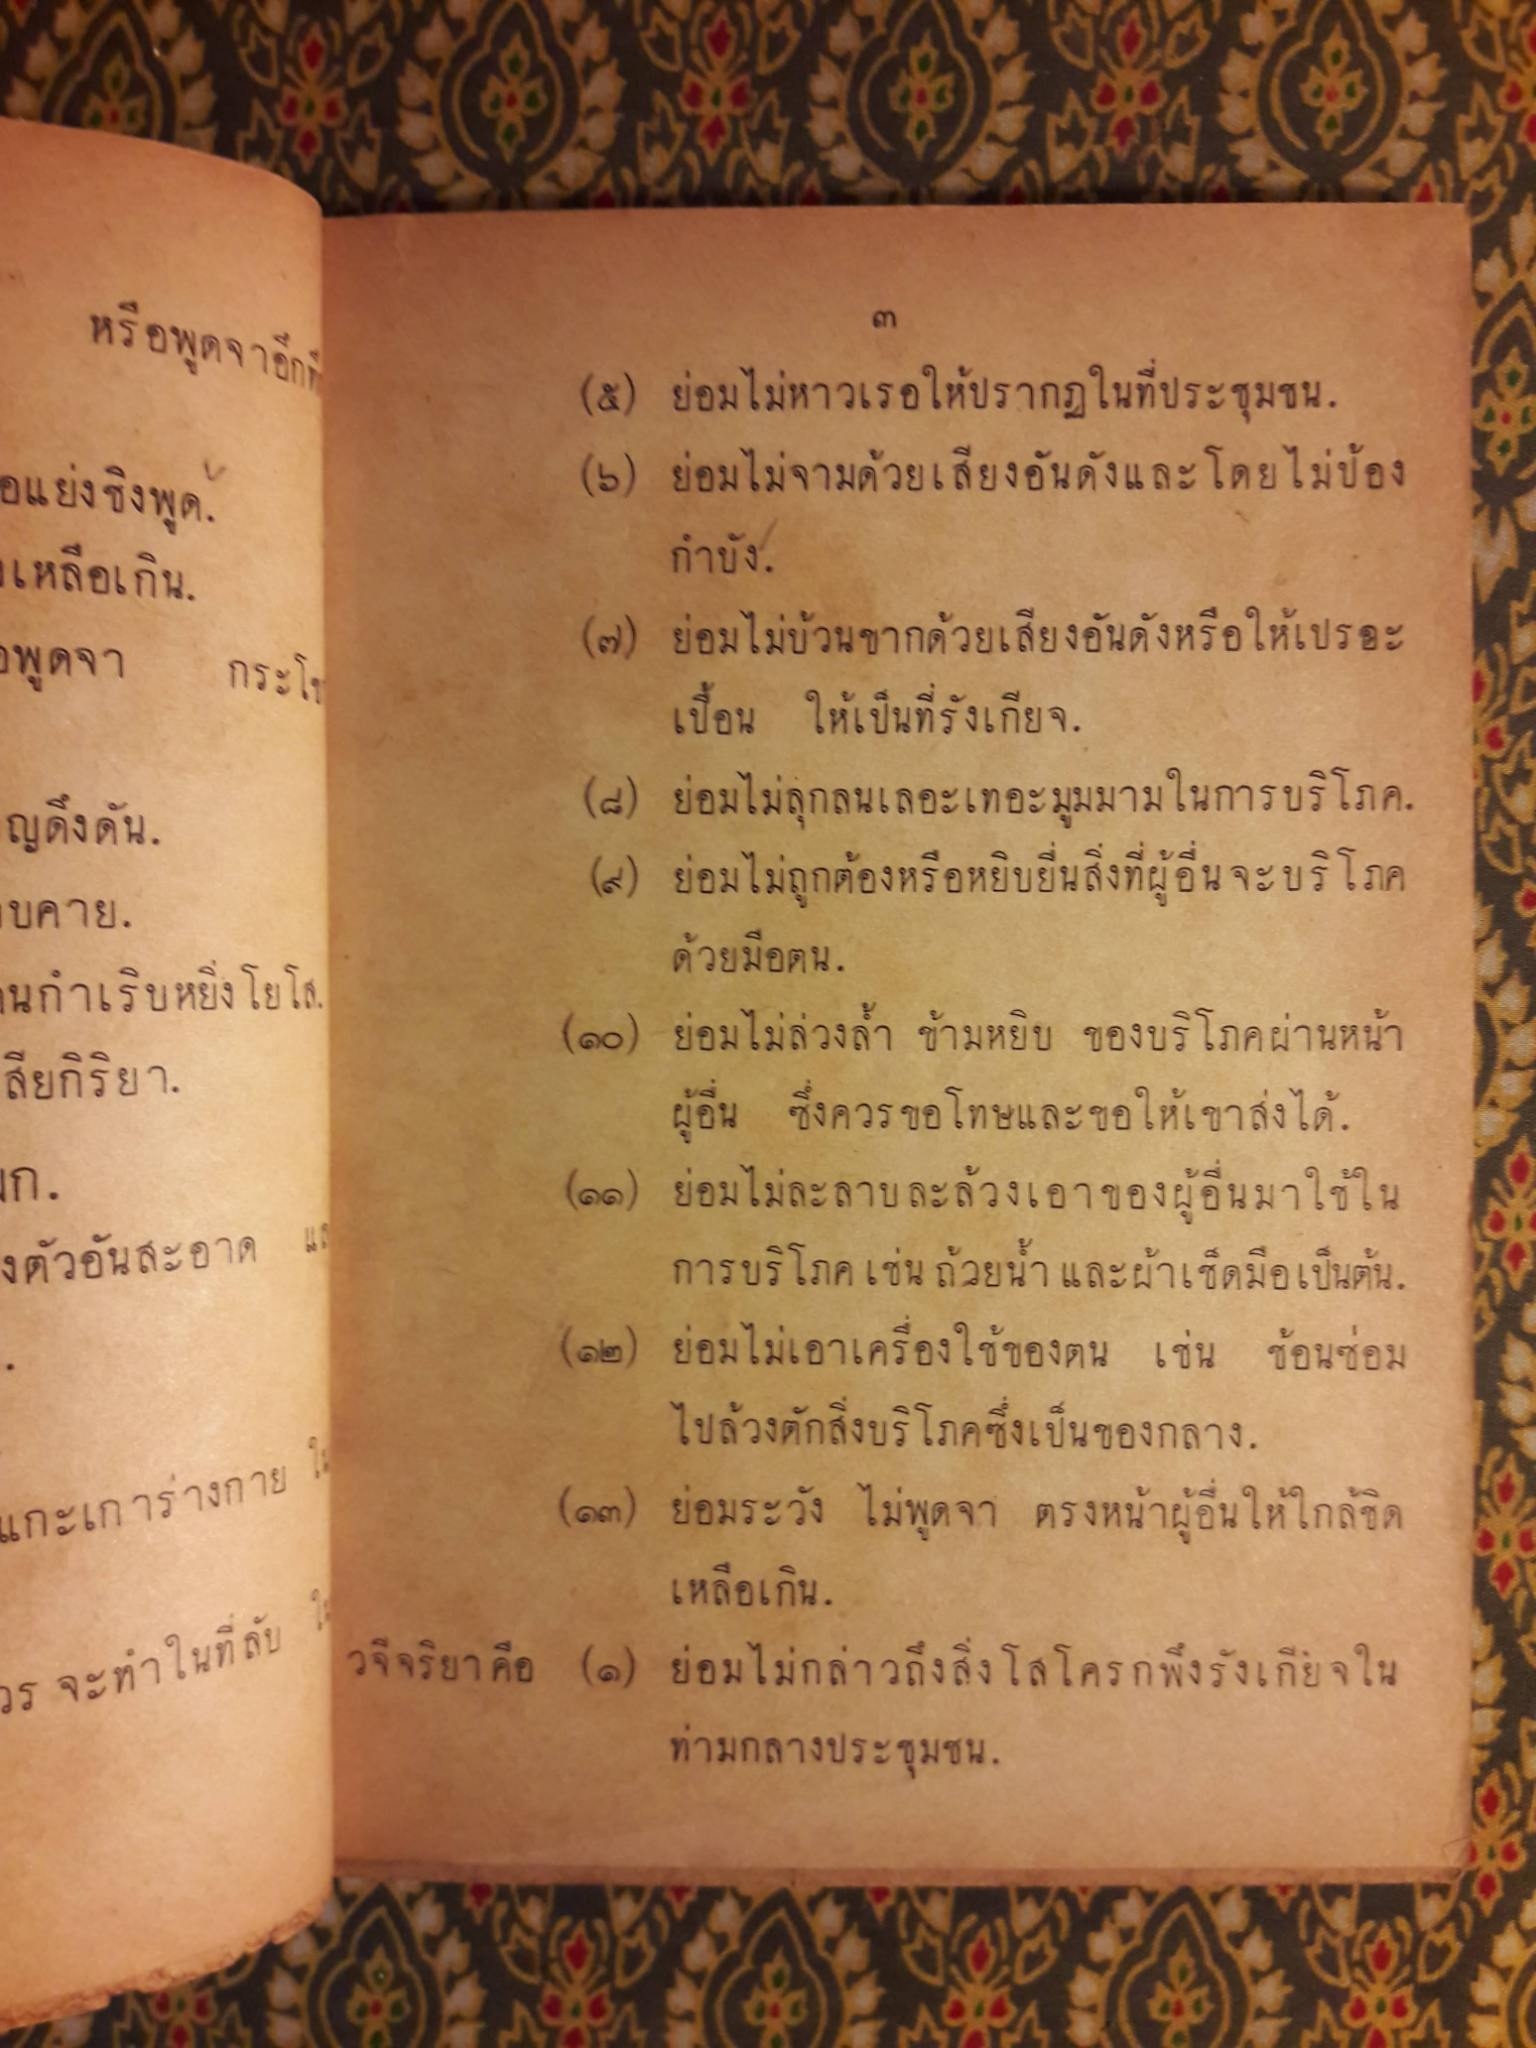 หรือพูดจาอึกทึ
อแย่งชิงพูด.
เหลือเกิน.
พูดจา กระโช
ญดึงดัน.
บคาย.
นกำเริบหยิ่งโยโส.
สียกิริยา.
งตัวอันสะอาด แล
แกะเการ่างกาย ใน
วร จะทำในที่ลับ
๓
(๕) ย่อมไม่หาวเรอให้ปรากฏในที่ประชุมชน.
(๖) ย่อมไม่จามด้วยเสียงอันดังและโดยไม่ป้อง
กำบัง.
(๗) ย่อมไม่บ้วนขากด้วยเสียงอันดังหรือให้เปรอะ
เปื้อน ให้เป็นที่รังเกียจ.
(๘) ย่อมไม่ลุกลนเลอะเทอะมูมมามในการบริโภค.
(๙) ย่อมไม่ถูกต้องหรือหยิบยื่นสิ่งที่ผู้อื่นจะบริโภค
ด้วยมือตน.
(๑๐) ย่อมไม่ล่วงล้ำ ข้ามหยิบ ของบริโภคผ่านหน้า
ผู้อื่น ซึ่งควรขอโทษและขอให้เขาส่งได้.
(๑๑) ย่อมไม่ละลาบละล้วงเอาของผู้อื่นมาใช้ใน
การบริโภค เช่น ถ้วยน้ำ และผ้าเช็ดมือเป็นต้น.
(๑๒) ย่อมไม่เอาเครื่องใช้ของตน เช่น ช้อนซ่อม
ไปล้วงตักสิ่งบริโภคซึ่งเป็นของกลาง.
(๑๓) ย่อมระวัง ไม่พูดจา ตรงหน้าผู้อื่นให้ใกล้ชิด
เหลือเกิน.
วจีจริยาคือ (๑) ย่อมไม่กล่าวถึงสิ่งโสโครกพึงรังเกียจใน
ท่ามกลางประชุมชน.